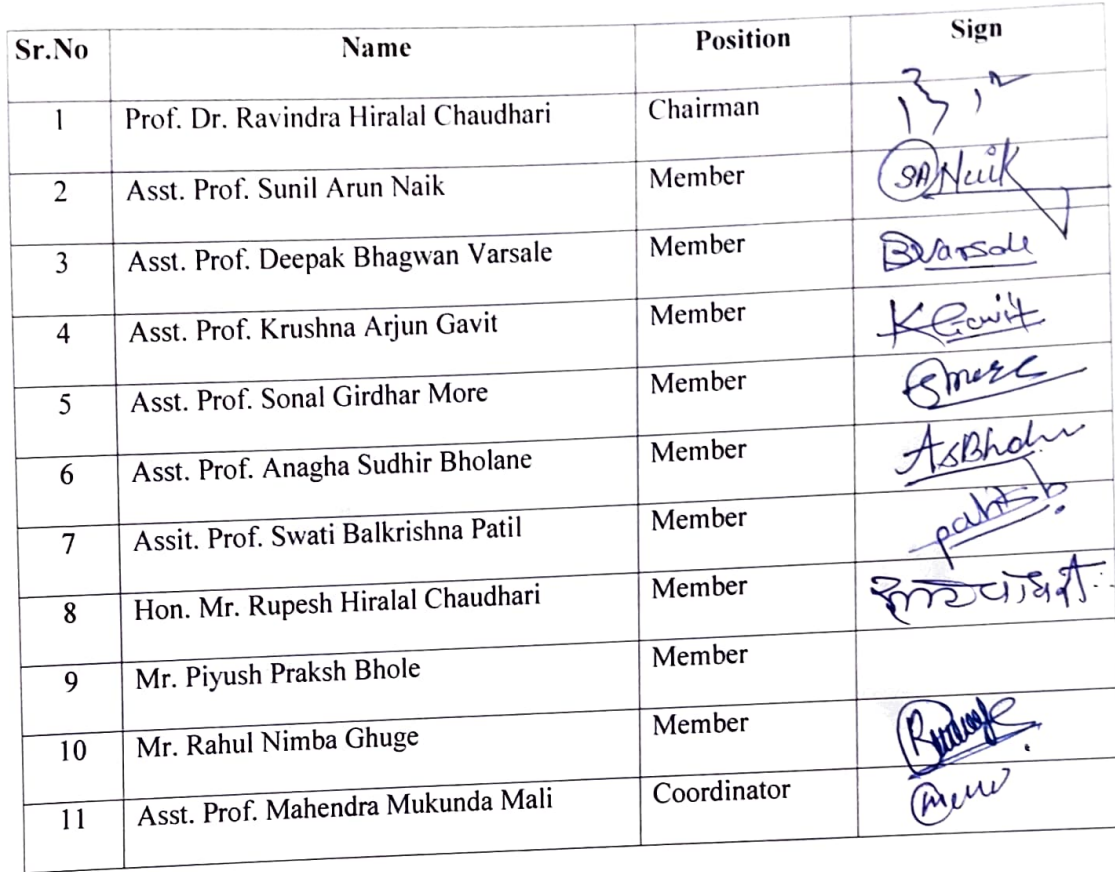 Sr.No Name Position Sign
1 Prof. Dr. Ravindra Hiralal Chaudhari Chairman
2 Asst. Prof. Sunil Arun Naik Member SANaik
3 Asst. Prof. Deepak Bhagwan Varsale Member BVarsale
4 Asst. Prof. Krushna Arjun Gavit Member KGavit
5 Asst. Prof. Sonal Girdhar More Member Smore
6 Asst. Prof. Anagha Sudhir Bholane Member
7 Assit. Prof. Swati Balkrishna Patil Member
8 Hon. Mr. Rupesh Hiralal Chaudhari Member
9 Mr. Piyush Praksh Bhole Member
10 Mr. Rahul Nimba Ghuge Member
11 Asst. Prof. Mahendra Mukunda Mali Coordinator